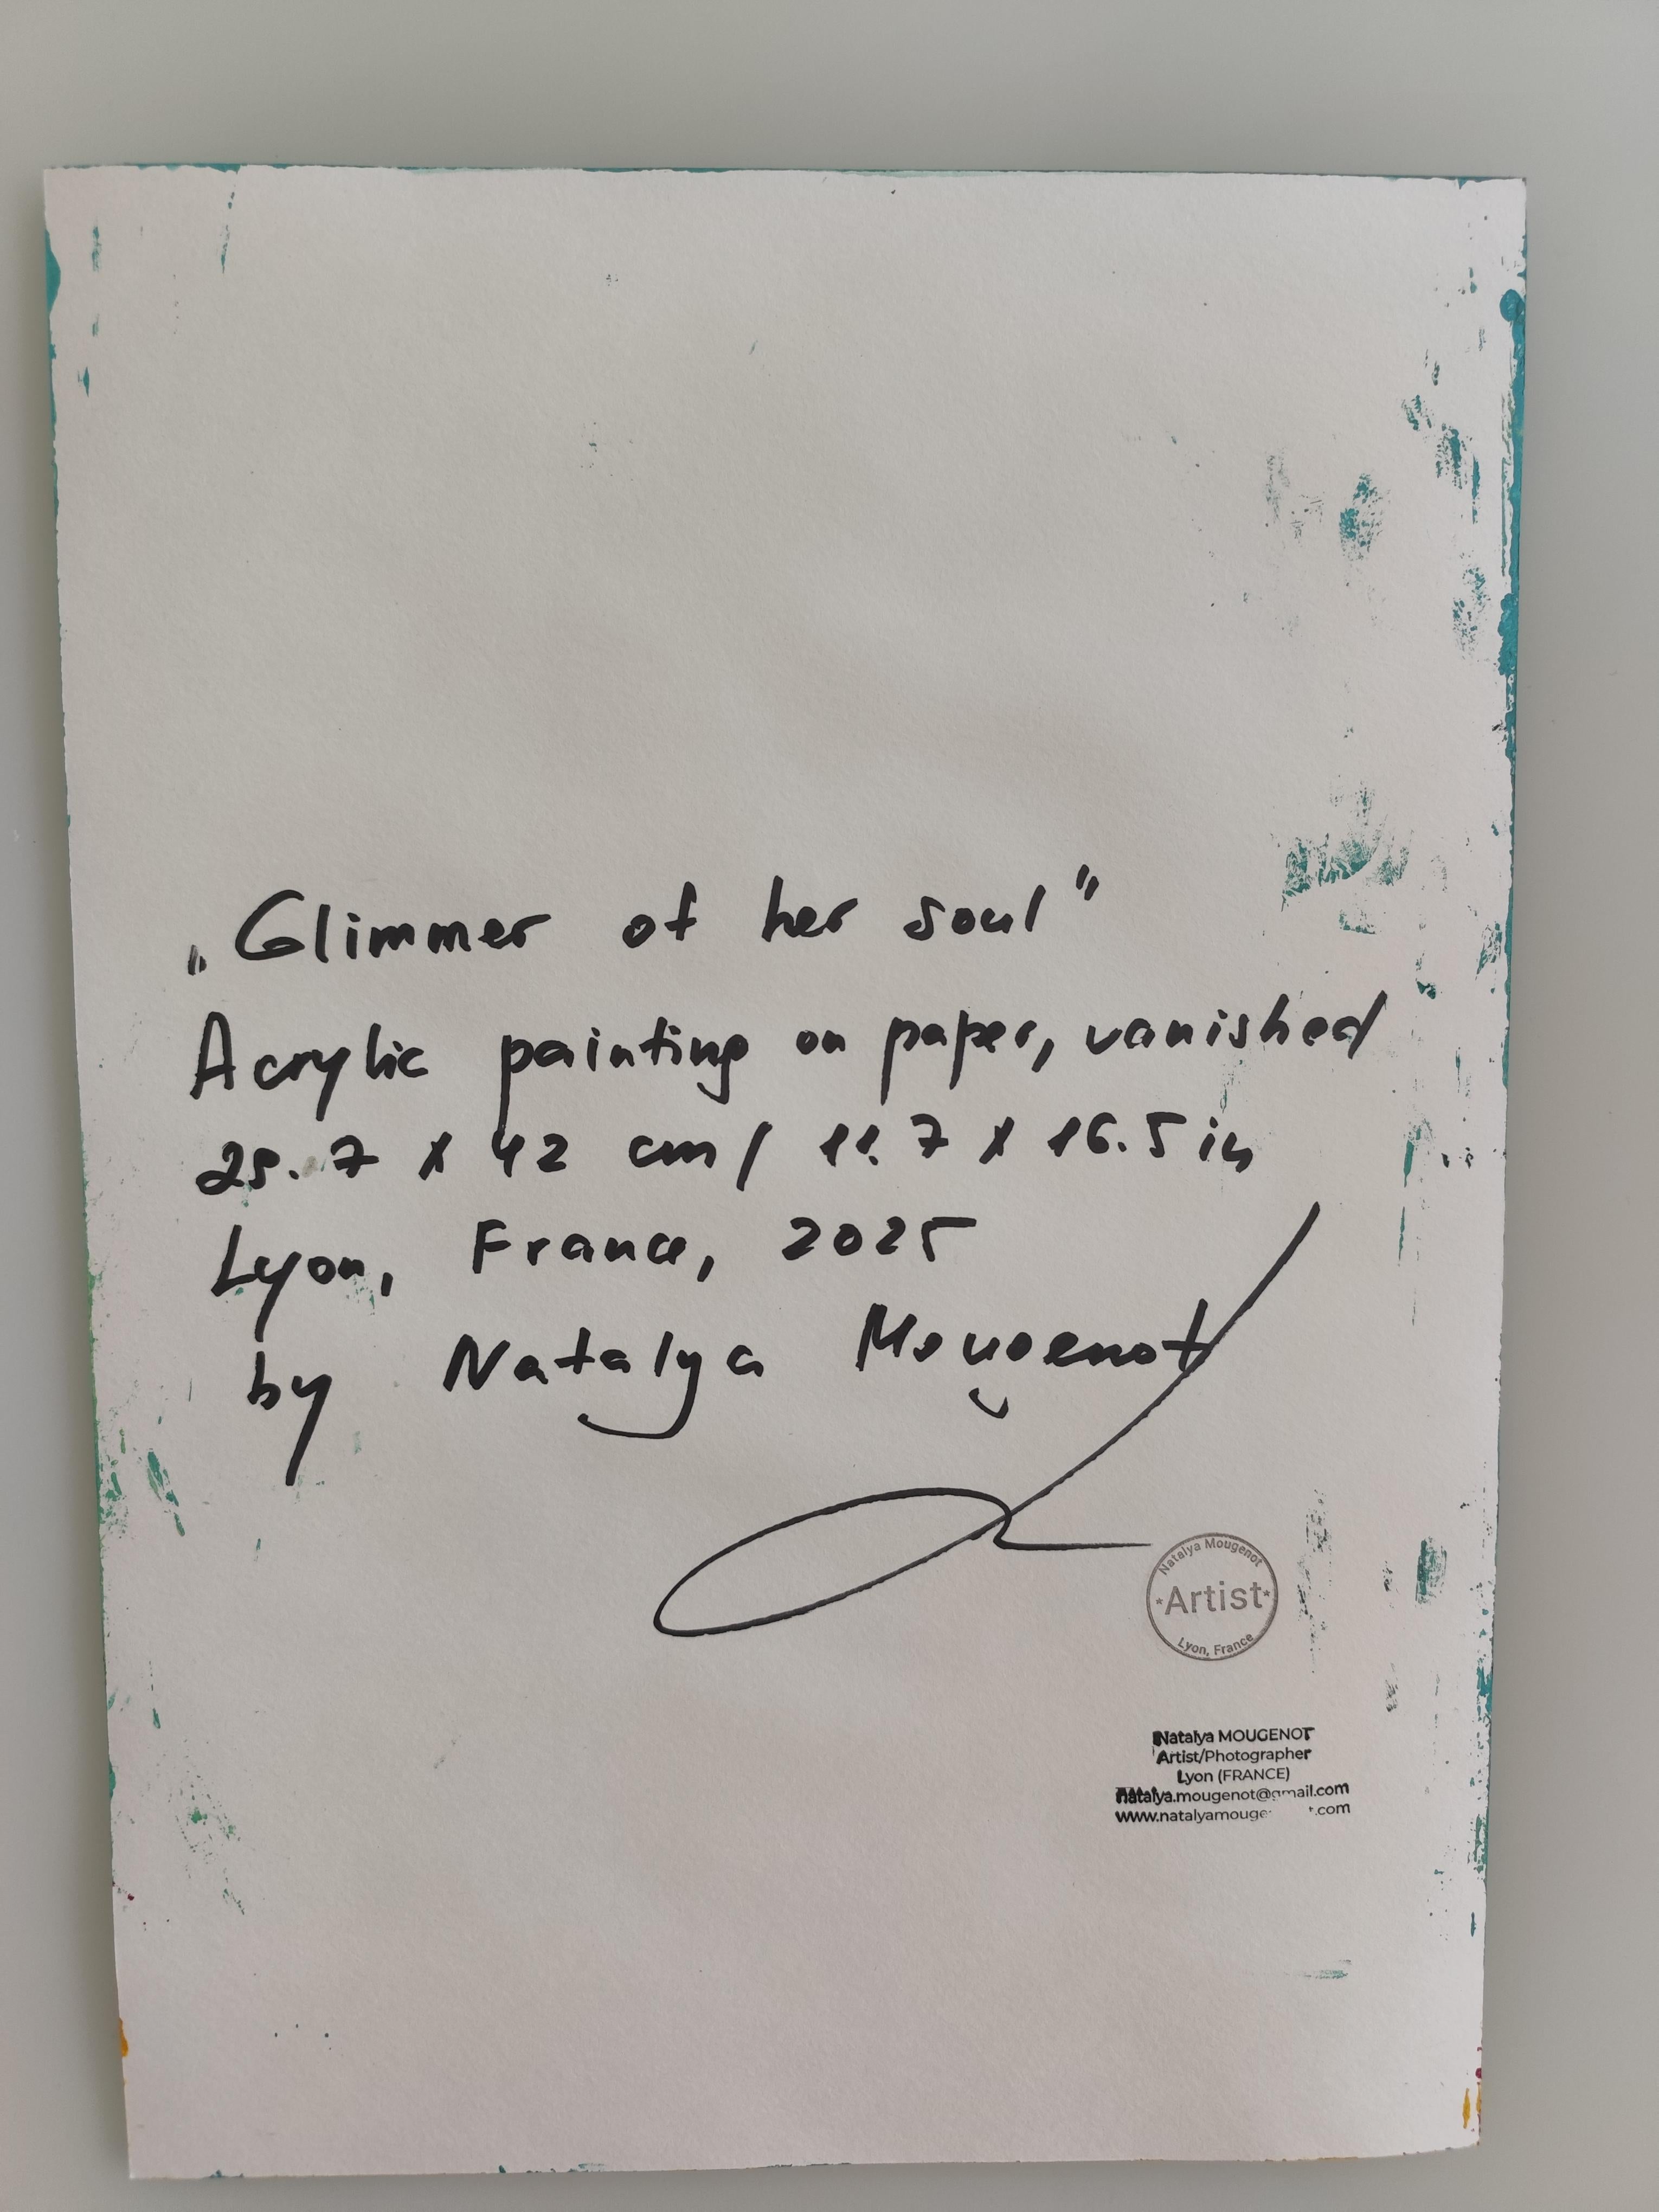 „Glimmer of her soul"
Acrylic painting on paper, vanished
29.7 x 42 cm / 11.7 x 16.5 in
Lyon, France, 2025
by Natalya Mougenot
Natalya Mougenot
*Artist*
Lyon, France
Natalya MOUGENOT
Artist/Photographer
Lyon (FRANCE)
natalya.mougenot@gmail.com